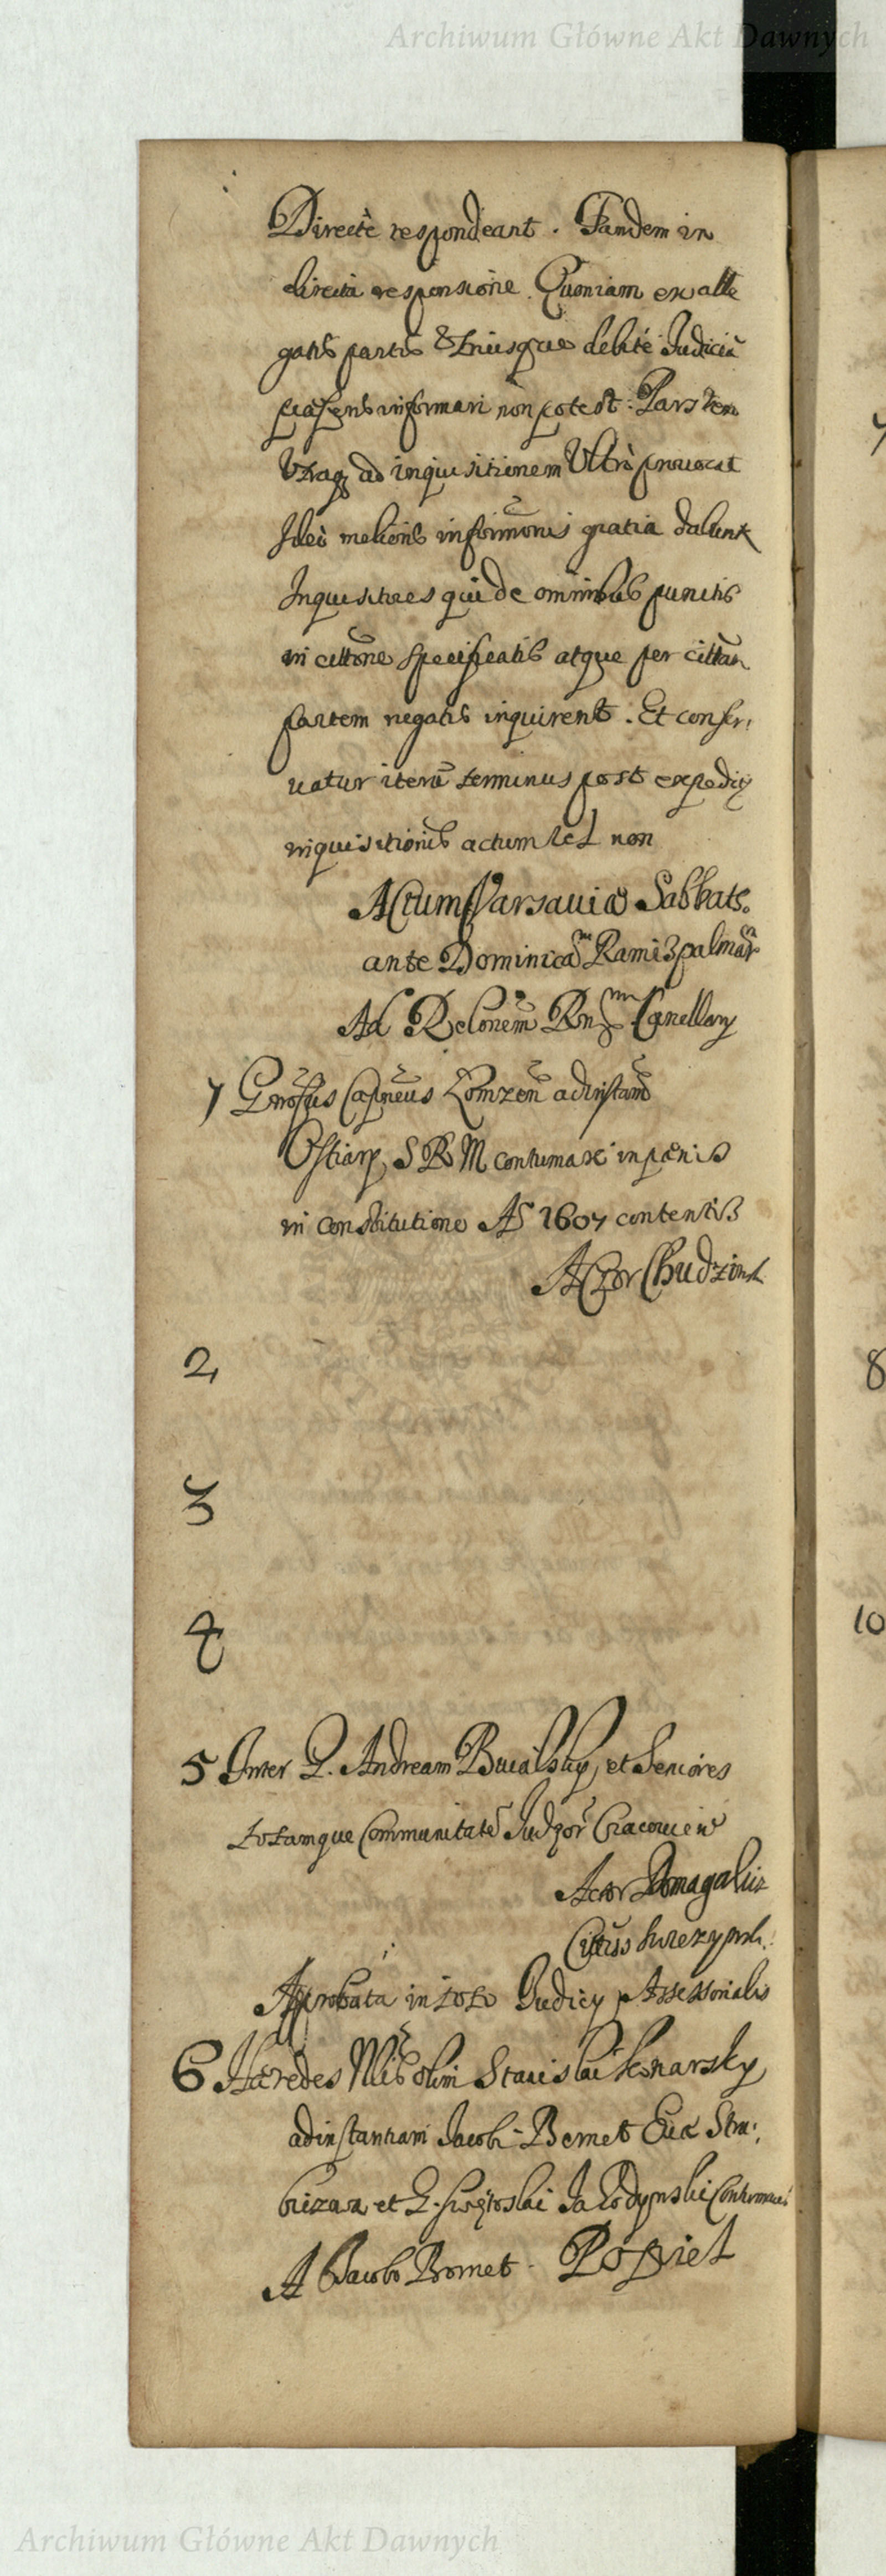 Archiwum Główne Akt Dawnych
Directe respondeant. Tandem in
directa responsione. Quoniam ex alle
gatis partis utriusque debite Judiciu
praesens informari non potest. Pars
Utraq ad inquisitionem Ultro prouocat
Ideo melioris informonis gratia dabunt
Inquisitores qui de omnibus punctis
in cittone specificatis atque per cittam
partem negatis inquirent. Et conser:
uatur iteru terminus post expedity
inquisitionis actum vel non
Actum Varsauiae Sabbato
ante Dominica Ramis palmar
Ad Relonem Cancellarij
1 Gnrosus Capneus Lomzen adinstand
Ostiarij S R M contumax in paenis
in constitutione Ao 1607 contentis
Actor Chudzinsk
2
3
4
5 Inter G. Andream Bucalsky, et Seniores
totamque Communitate Judaeor Cracouien
Actor Domagalicz
Approbata in toto Judicij Assessorialis
6 Haeredes olim Stanislai Konarsky
adinstantiam Jacobi Bemet Euae Stra:
et G. Swiętoslai contumaces
A Jacobo Bomet. Popiel
7
8
10
Archiwum Główne Akt Dawnych